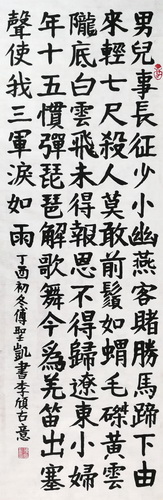 男兒事長征少小幽燕客賭勝馬蹄下由
來輕七尺殺人莫敢前鬚如蝟毛磔黃雲
隴底白雲飛未得報恩不得歸遼東小婦
年十五慣彈琵琶解歌舞今為羌笛出塞
聲使我三軍淚如雨
丁酉初冬傅聖凱書李頎古意